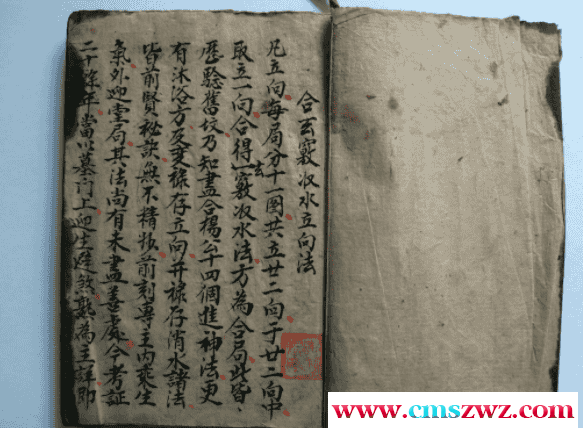 合玄竅收水立向法
凡立向每局分十一圖共立廿二向于廿二向中
取立一向合得一竅收水法方為合局此皆
玄
歷驗舊坟乃知盡合楊公十四個進神法更
有沐浴方及变祿存立向并祿存消水諸法
皆前賢祕訣無不精抄前刻專主內乘生
氣外迎堂局其法尚有未盡善處今考証
二十餘年當以墓門上迎生避煞為主詳即
www.cmszwz.com